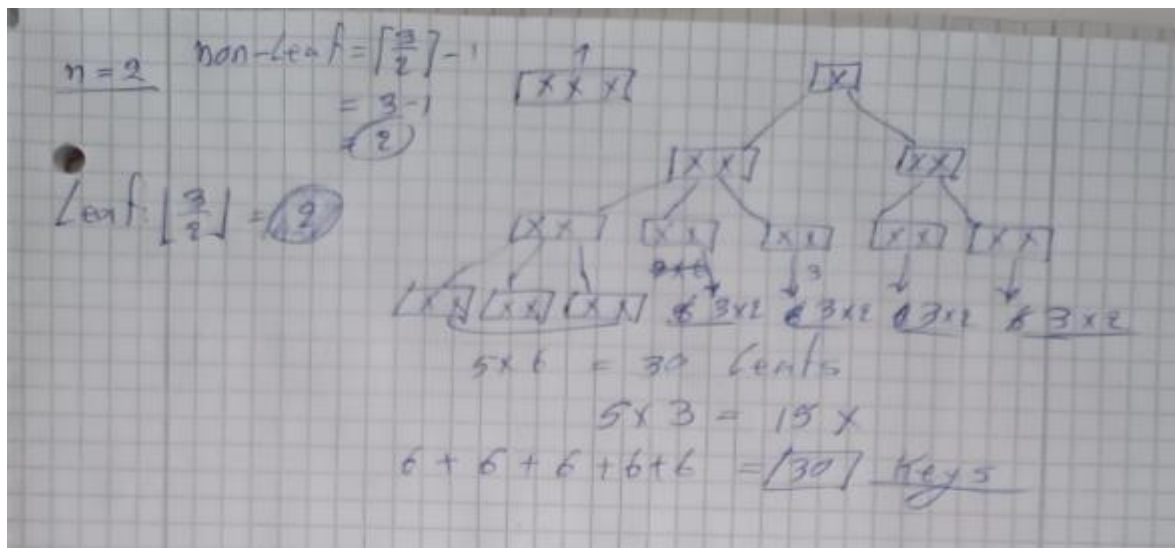 n = 2
non-Leaf = ⌈3/2⌉ - 1
= 3 - 1
= 2
Leaf: ⌊3/2⌋ = 2
1
X X X
X
X X X X
X X X X X X X X X X
3
X X X X X X 3x2 3x2 3x2 3x2
5x6 = 30 Leafs
5x3 = 15 X
6 + 6 + 6 + 6 + 6 = 30 Keys